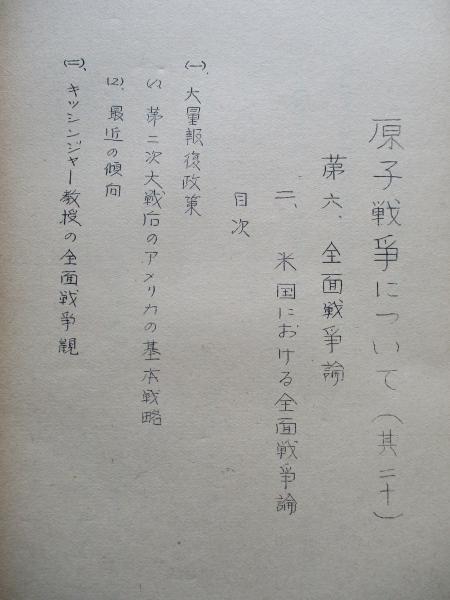 原子戦争について(其二十)
第六、全面戦争論
二、米国における全面戦争論
目次
(一)、大量報復政策
(1) 第二次大戦后のアメリカの基本戦略
(2) 最近の傾向
(二)、キッシンジャー教授の全面戦争観